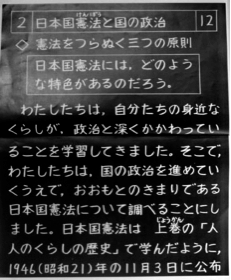 2 日本国憲法と国の政治 12
けんぽう
◇ 憲法をつらぬく三つの原則
日本国憲法には、どのよう
な特色があるのだろう。
わたしたちは、自分たちの身近な
くらしが、政治と深くかかわってい
ることを学習してきました。そこで、
わたしたちは、国の政治を進めてい
くうえで、おおもとのきまりである
日本国憲法について調べることにし
じょうかん
ました。日本国憲法は 上巻の「人
人のくらしの歴史」で学んだように、
1946(昭和21)年の11月3日に公布